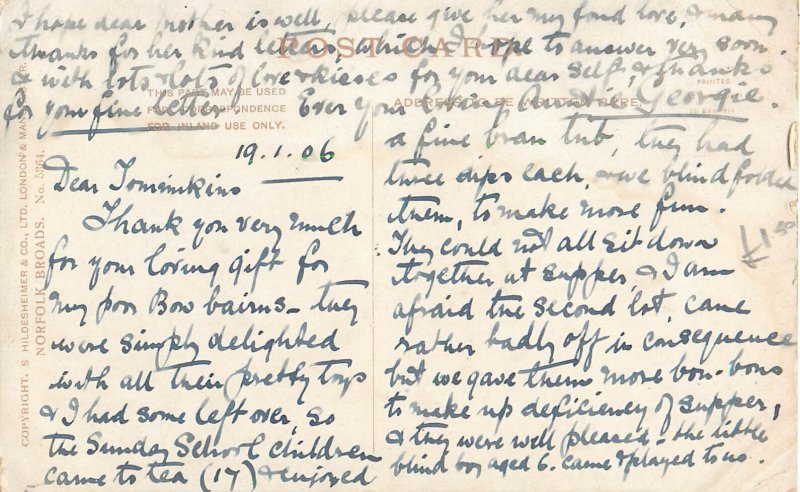 19.1.06
Dear Tommikins
Thank you very much
for your loving gift for
my poor Bow bairns - they
were simply delighted
with all their pretty toys
& I had some left over, so
the Sunday School children
came to tea (17) & enjoyed
a fine bran tub, they had
three dips each, & we blind folded
them, to make more fun.
They could not all sit down
together at supper, & I am
afraid the second lot, came
rather badly off in consequence
but we gave them more bon-bons
to make up deficiency of supper,
& they were well pleased - the little
blind boy aged 6. came & played to us.
I hope dear mother is well, please give her my fond love, & many
thanks for her kind letters, which I hope to answer very soon.
& with lots & lots of love & kisses for your dear self, & thanks
for your fine letter. Ever your loving Auntie Georgie.
POST CARD
THIS PART MAY BE USED
FOR CORRESPONDENCE
FOR INLAND USE ONLY.
ADDRESS TO BE WRITTEN HERE.
PRINTED
IN BAVARIA
COPYRIGHT. S HILDESHEIMER & CO., LTD. LONDON & MANCHESTER.
NORFOLK BROADS. No. 5264.